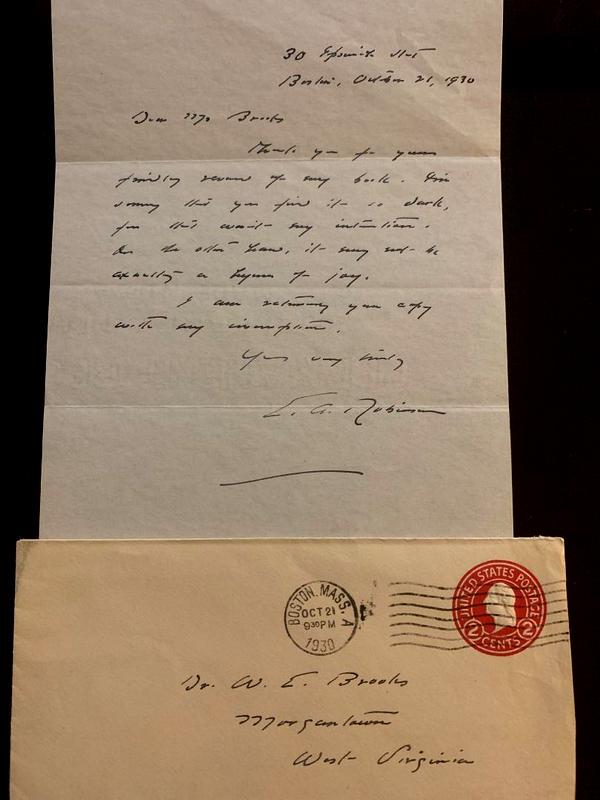 30 Ipswich Street
Boston, October 21, 1930
Dear Mr Brooks
Thank you for your
friendly review of my book. I'm
sorry that you find it so dark,
for that wasn't my intention.
On the other hand, it may not be
exactly a hymn of joy.
I am returning your copy
with my inscription.
Yours very truly
E. A. Robinson
BOSTON, MASS. A
OCT 21
9 30 PM
1930
UNITED STATES POSTAGE
2 CENTS 2
Dr. W. E. Brooks
Morgantown
West Virginia